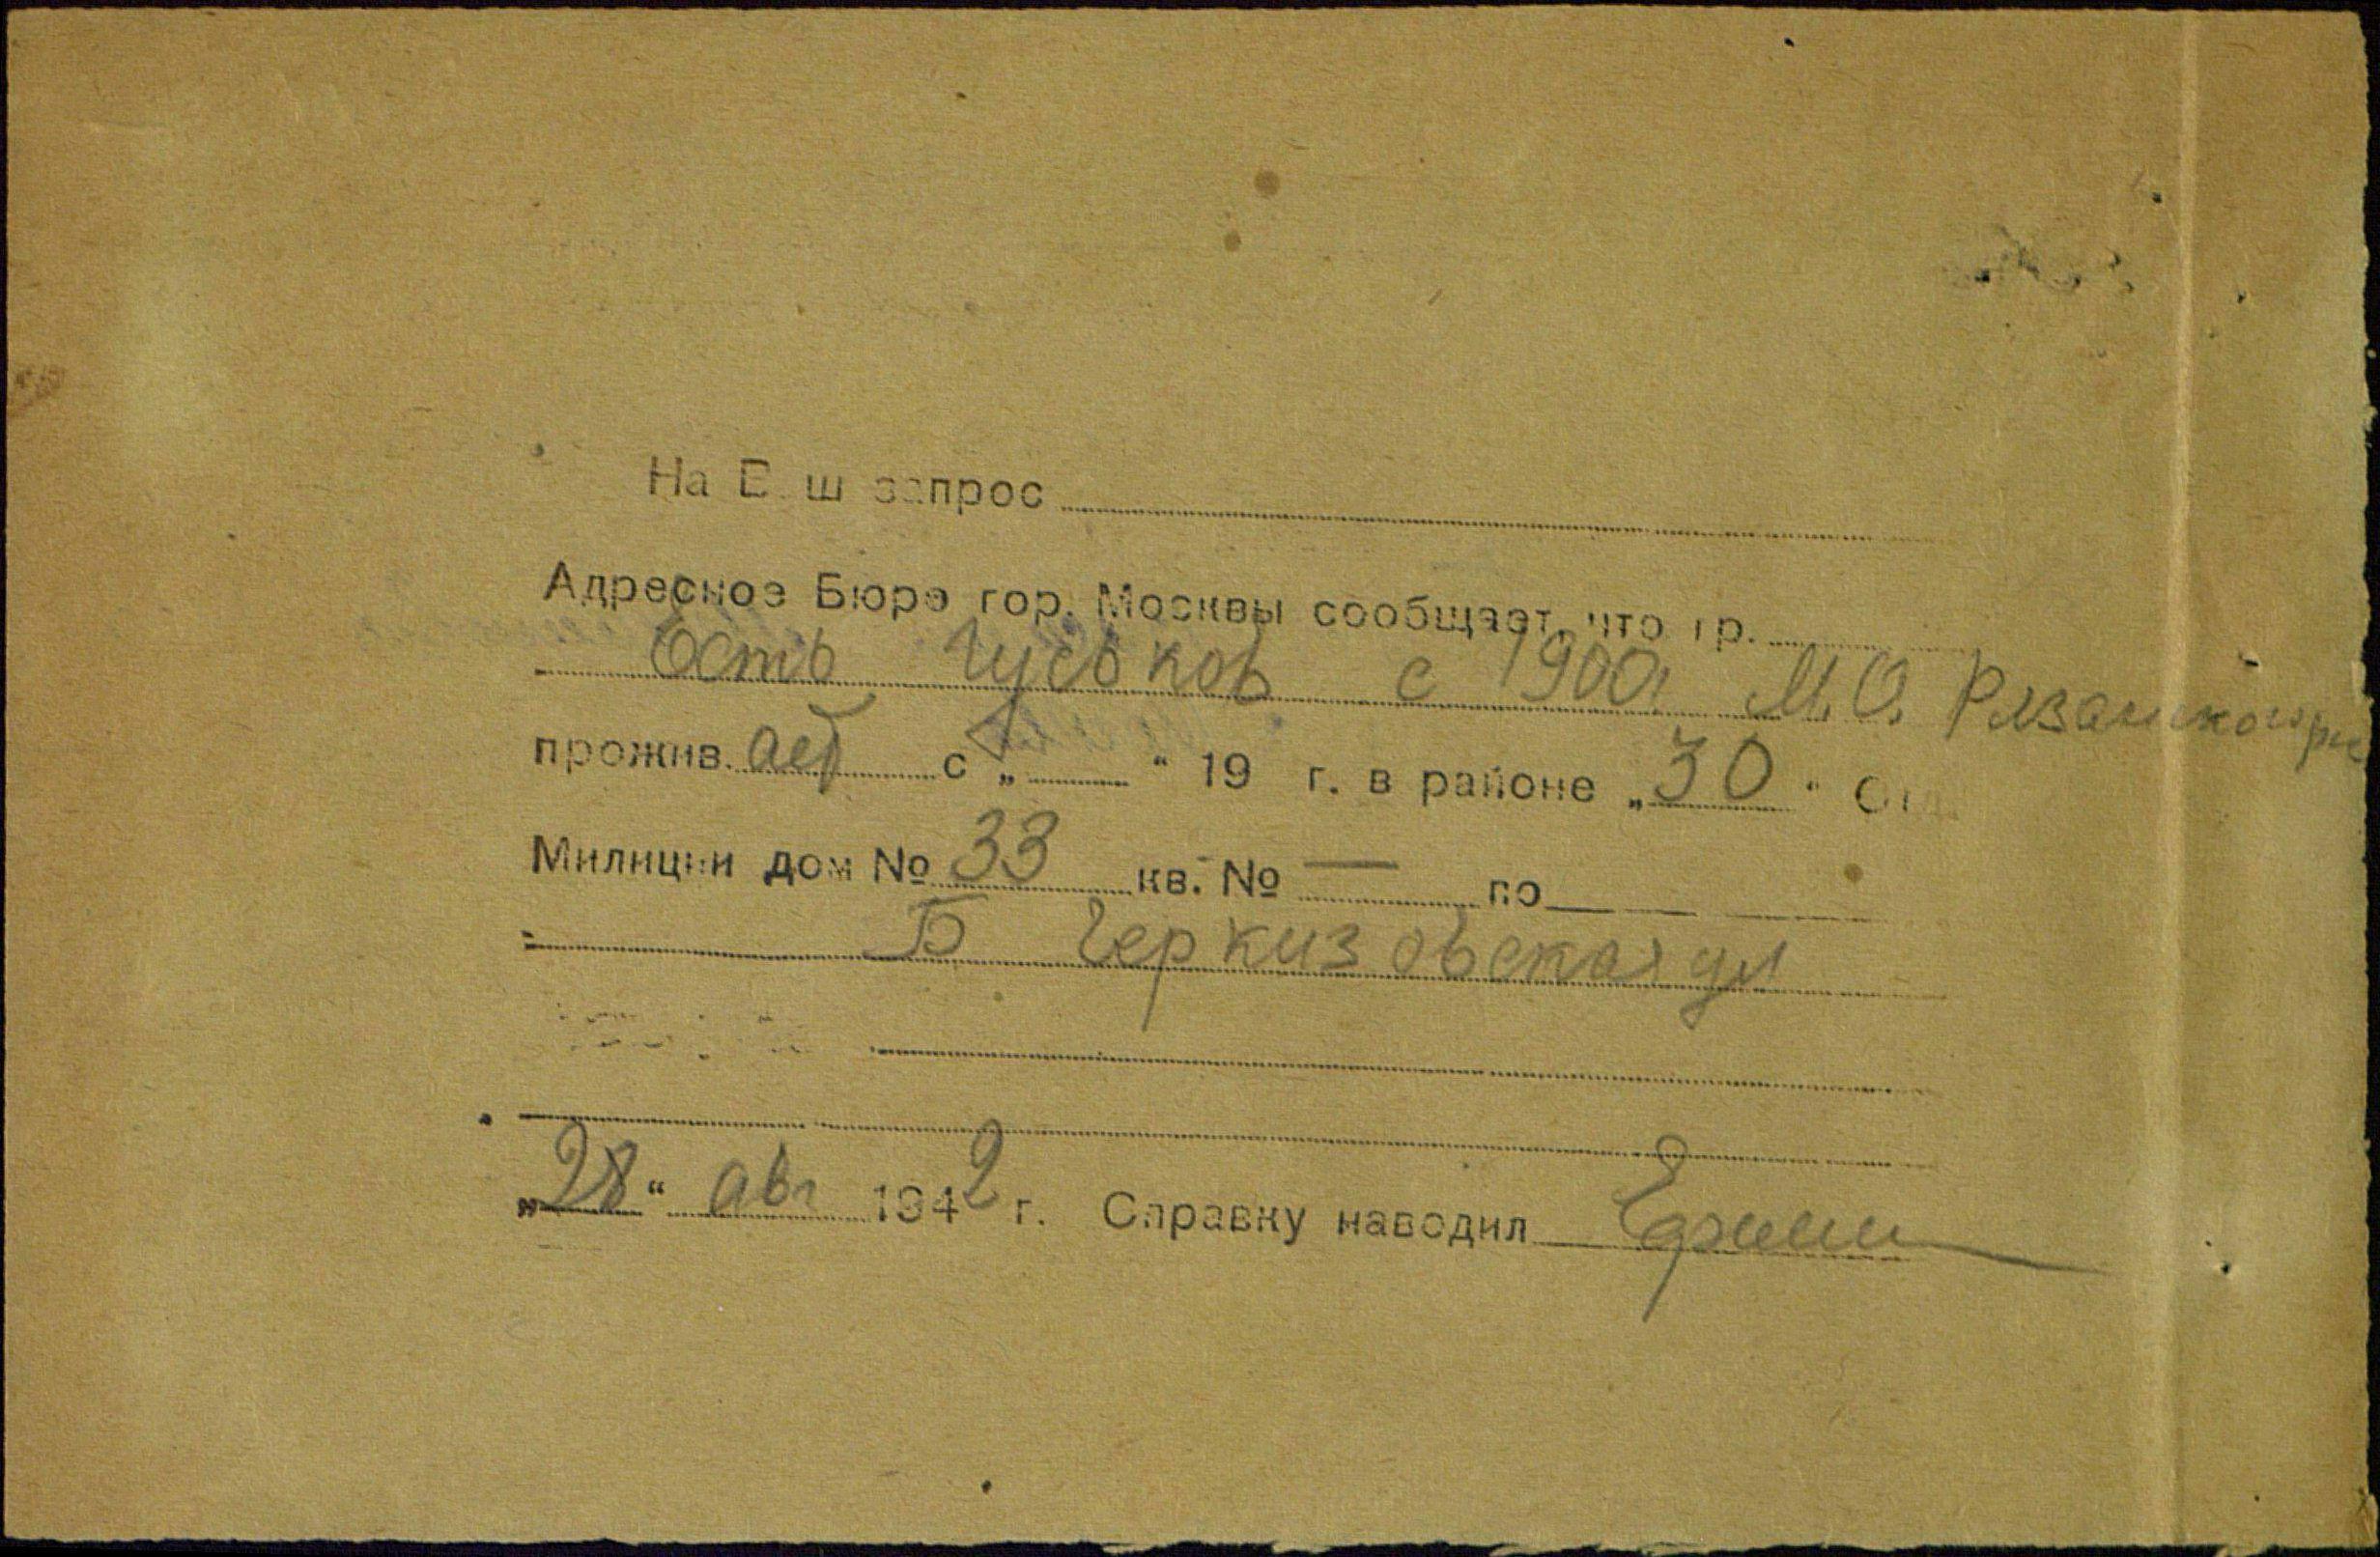 На В ш запрос
Адресное Бюро гор. Москвы сообщает, что гр.
Есть Гуськов с 1900г М.О. Рязанск
прожив. с „ “ 19 г. в районе „30“ От
Милиции дом № 33 кв. № — по
Б Черкизовская ул
„28“ авг 1942 г. Справку наводил